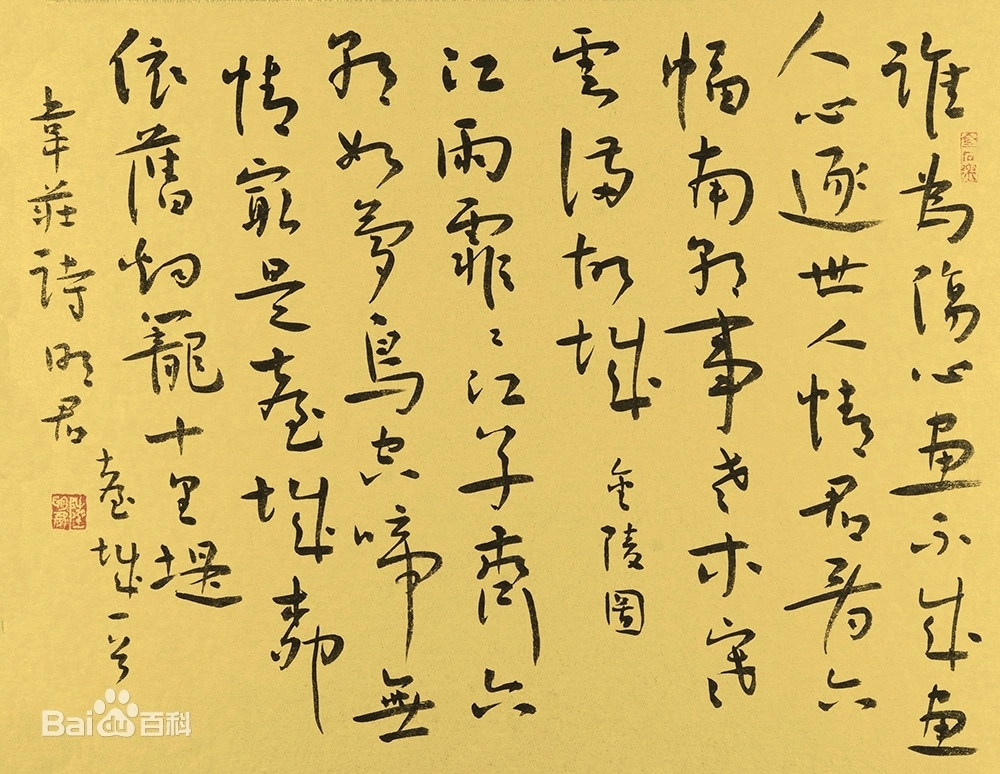 誰為傷心畫不成畫
人心逐世人情君看六
幅南朝事老木寒
雲滿故城 金陵圖
江雨霏〻江草齊六
朝如夢鳥空啼無
情最是臺城柳
依舊烟籠十里堤
臺城一首
韋莊詩 明君
金石樂
Bai百科